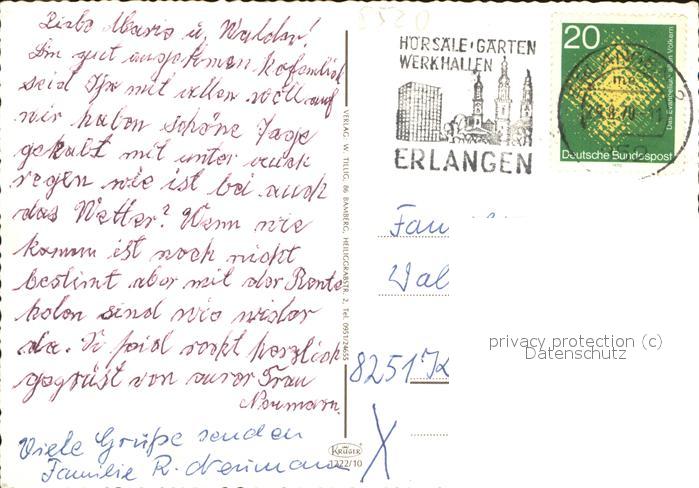 Liebe Maria u. Walder!
Bin gut angekomen hofendlich
seid Ihr mit allen wollauf
wir haben schöne Tage
gehabt mit unter auch
regen wie ist bei auch
das Wetter? Wenn wir
komen ist noch nicht
bestimt aber mit der Rente
holen sind wir wider
da. So seid recht herzlich
gegrüst von eurer Frau
Neumann.
Viele Grüße senden
Familie R. Neumann
VERLAG W. TILLIG, 86 BAMBERG, HEILIGGRABSTR. 2, Tel. 0951/24655
KRÜGER
1222/10
HÖRSÄLE·GÄRTEN
WERKHALLEN
ERLANGEN
20
Deutsche Bundespost
Fam
Wal
8251 K
privacy protection (c)
Datenschutz